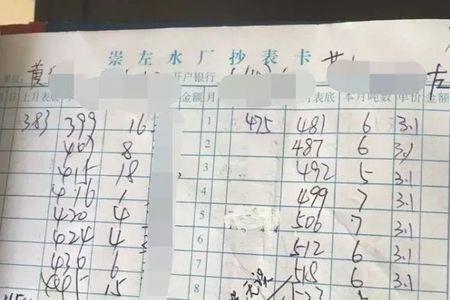 崇左水厂抄表卡
黄 开户银行
上月表底 金额 月 表底 本月吨数 单价 金额
383 399 16 1 475 481 6 3.1
407 8 2 487 6 3.1
18 3 492 5 3.1
416 1 4 499 7 3.1
420 4 5 506 7 3.1
424 4 6 512 6 3.1
430 6 7 518 6 3.1
15 8